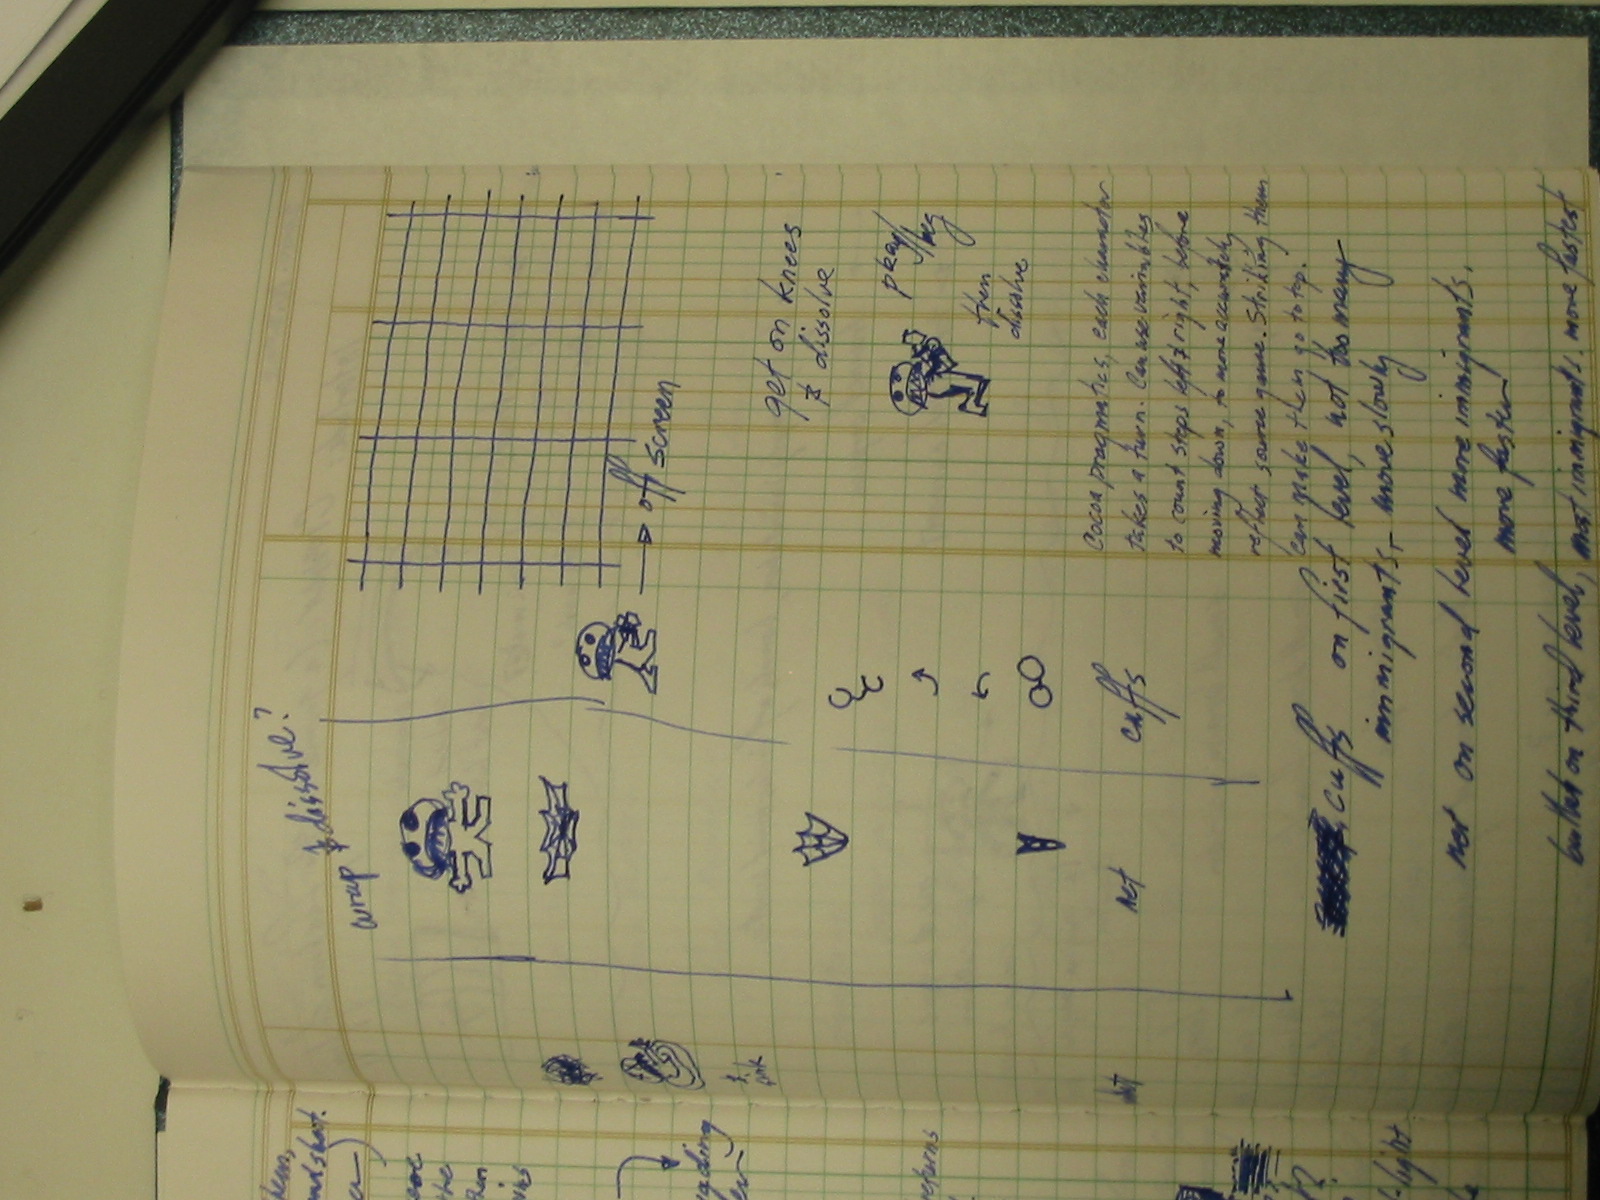 wrap
& dissolve?
→ off screen
get on knees
& dissolve
pray/
beg
then
dissolve
net
cuffs
Cocoa pragmatics, each character
takes a turn. Can use variables
to count steps left & right, before
moving down, to more accurately
reflect source game. Striking them
can make them go to top.
cuffs on first level, not too many
immigrants, - move slowly
net on second level more immigrants,
move faster
bullet on third level, most immigrants. move fastest
returns
light